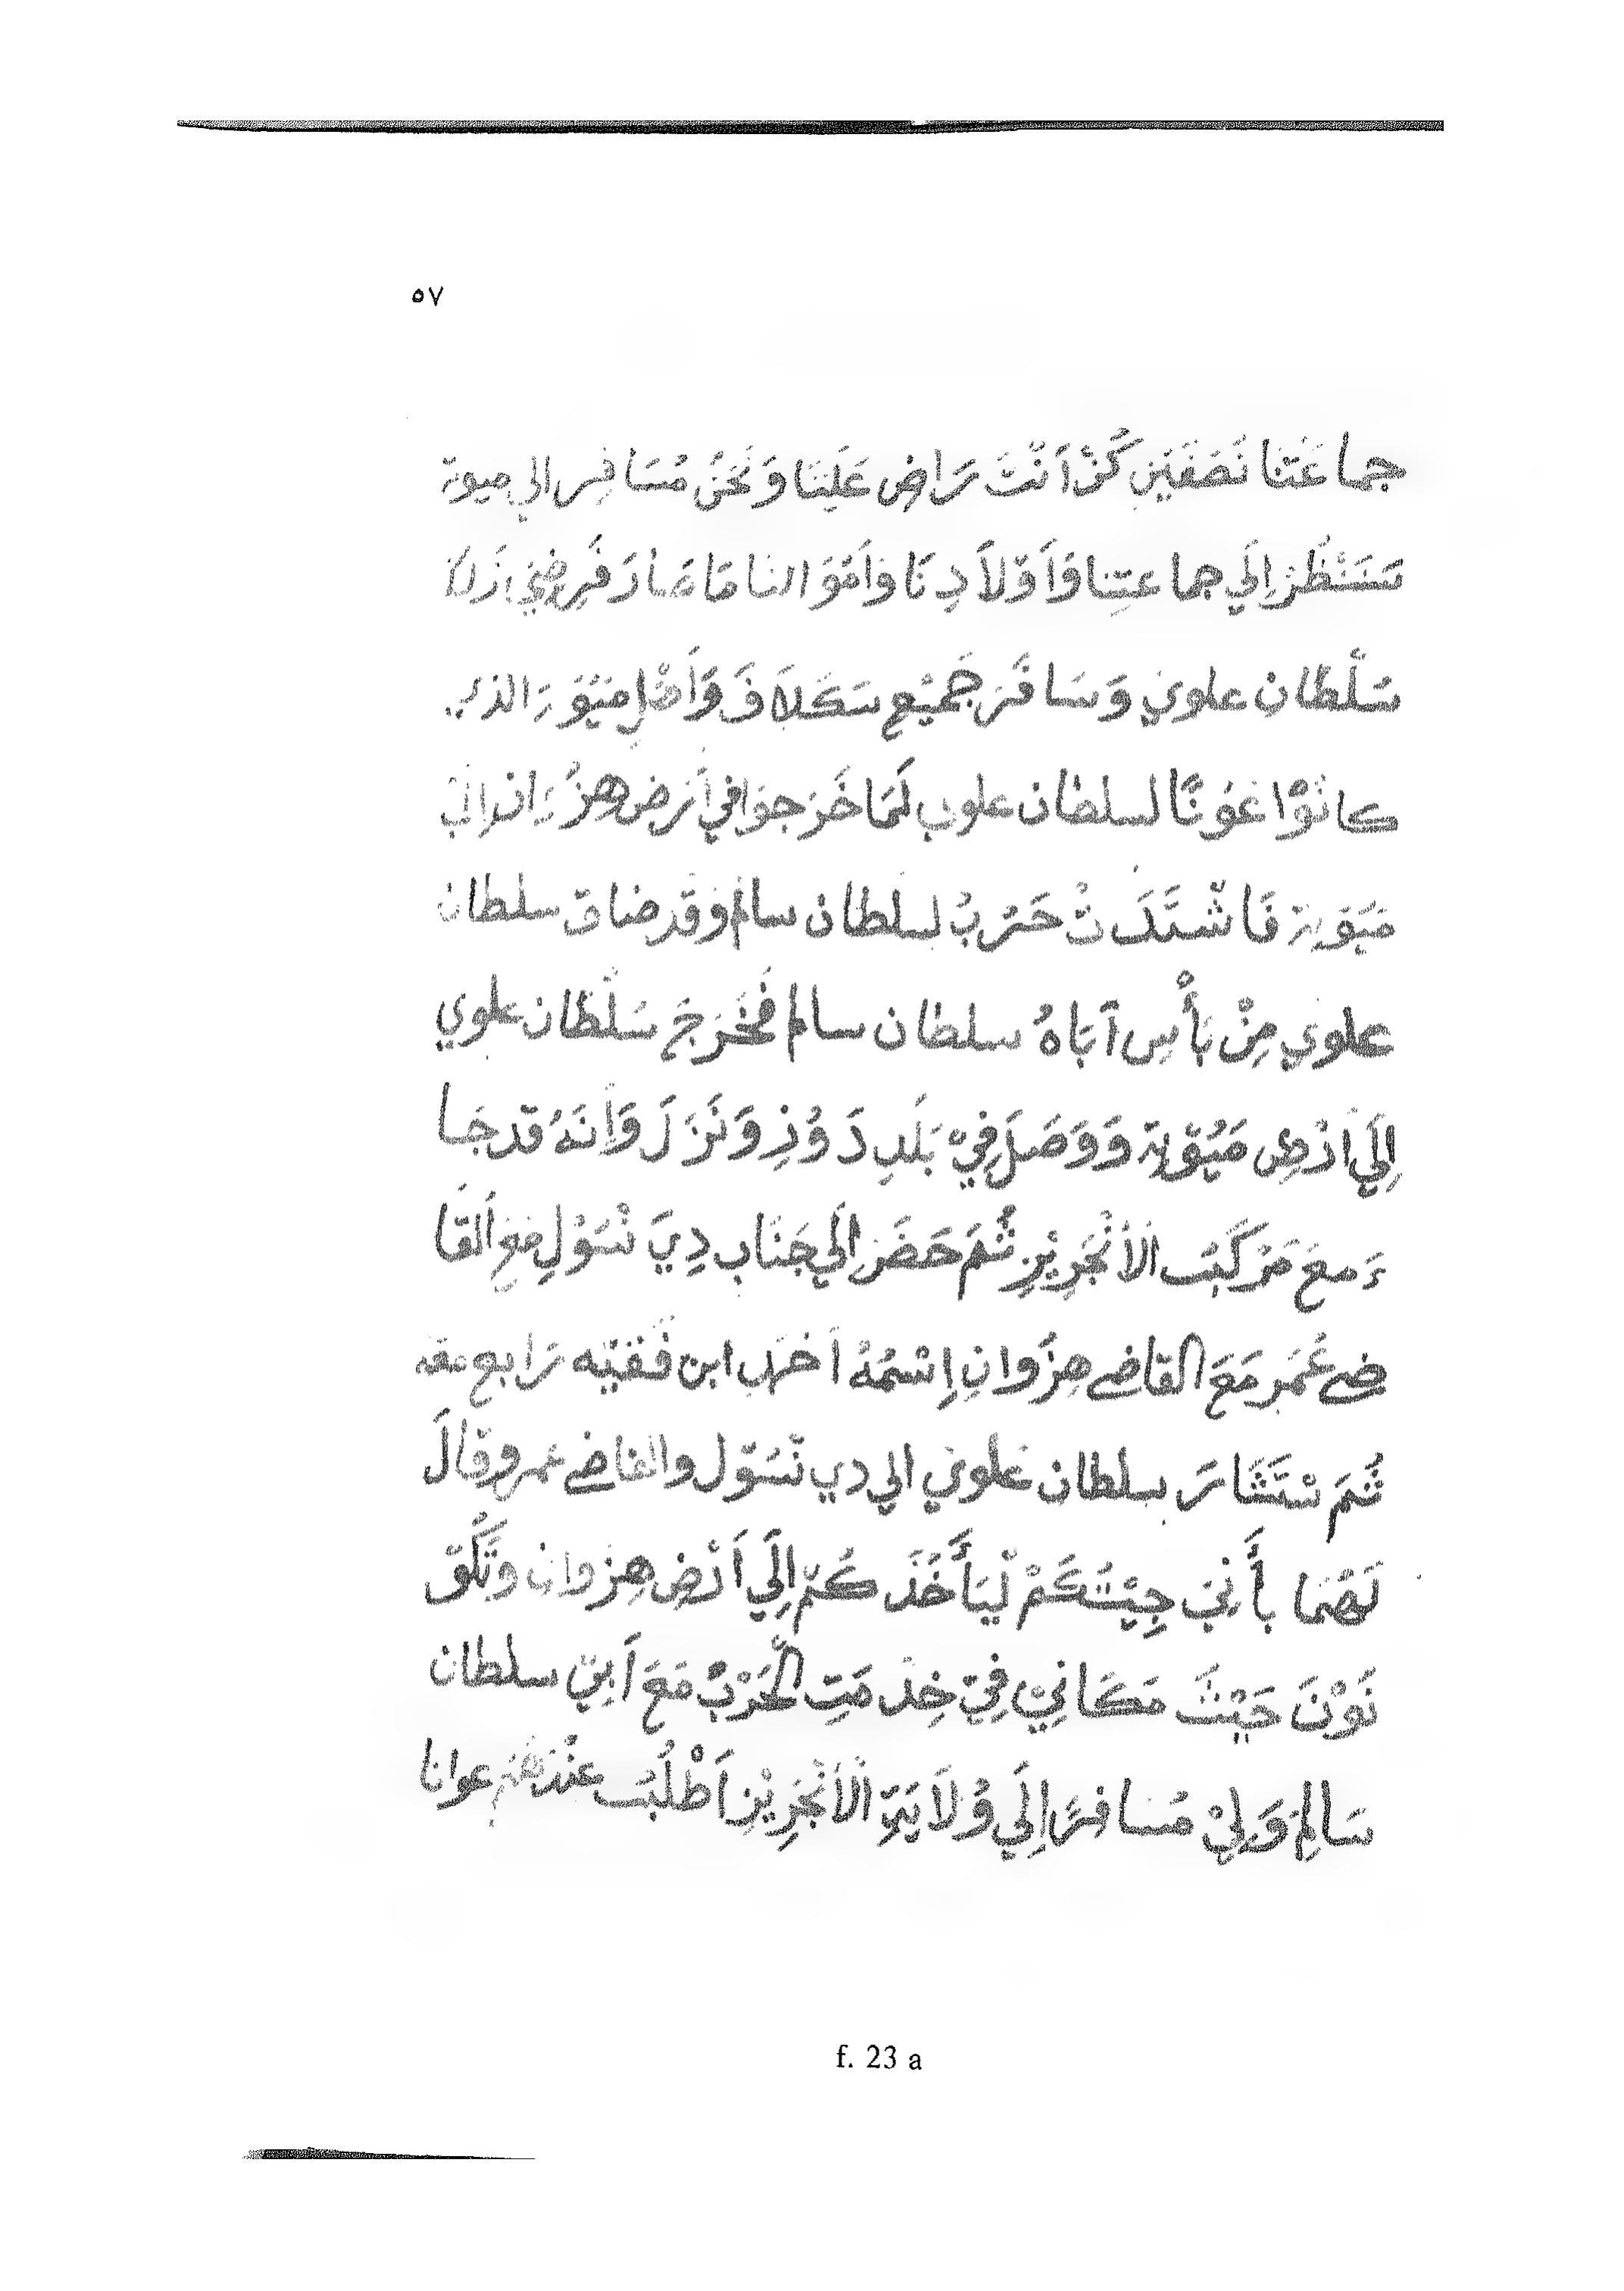 ٥٧
جماعَتنا نَصَفَيْنِ كُنْ أَنْتَ رَاضٍ عَلَيْنَا وَنَحْنُ مُسَافِر الي ميوة
سَنَنْظُرْ إِلَي جماعتِنا وَأَوْلَادِنَا وَأَمْوَالنا مَا صَارَ فَرِضِيَ
سَلْطان علوي وَسَافَرَ جَمِيْع سَكَلَافَ وَأَهْلِ مَيُوَة الذي
كانُوْا عَوْنًا لسلطان علوي لَمَا خَرَجوا في أَرض هِزُوَان إِلَيَ
مَيُوَة فَاشْتَدَتْ حَرْبُ لسلطان سالم وقد ضاق سلطان
علوي مِنْ بَأْسِ آبَاهُ سلطان سالم فَخَرَجَ سَلْطان علوي
إِلَي أَرْضِ مَيُوَة وَوَصَلَ فِيْ بَلَدِ دَوُذِ وَنَزَلَ وَأَنَهُ قد جَا
ءَ معَ مَرْكَبْ الأَنْجَرِيْزِ ثُمَ حَضَرَ إِلَي جَنَابِ دِيَ نْسَوْلِ مَعَ القا
ضي عُمَر مَعَ القاضي هِزُوانِ إِسْمُهُ أَحْمَد ابن فَقِيْه رَابع معَه
ثُمَ سْتَشَارَ سلطان عَلوي الي دي نْسَوْل والقاضي عمر وقَالَ
لَهُمَا بأَنِيَ جِيْتُكُمْ لِيَأْخُذَكُمْ إِلَي أَرْضِ هِزوان وتَكُوْ
نَوْنَ حَيْثَ مَكَانِيْ فِيْ خِدْمَتِ الْحَرْبْ مَعَ أَبِيْ سلطان
سَالِمْ وَلِيْ مُسَافِرًا إِلَي وُلَايَة الأَنْجَرِيْزِ أَطْلُبُ عِنْدَهُمْ عوانا
f. 23 a